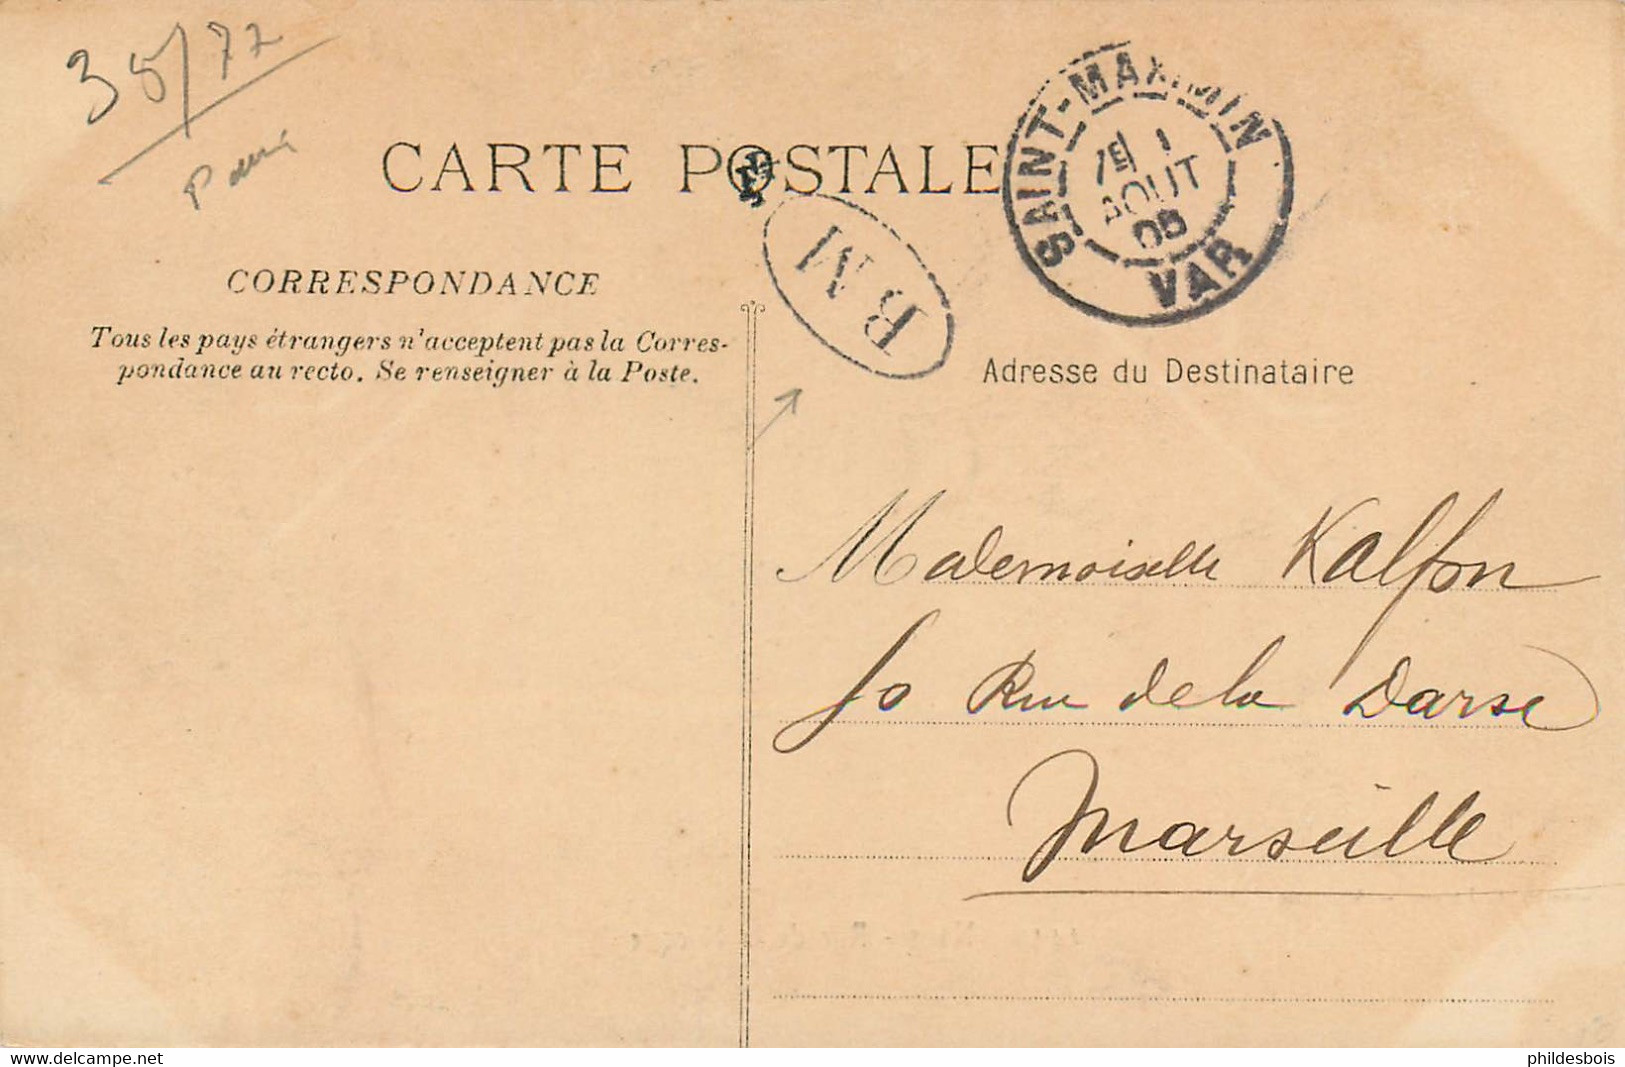 38/77
CARTE POSTALE
SAINT-MAXIMIN
1
AOUT
08
VAR
BM
CORRESPONDANCE
Tous les pays étrangers n'acceptent pas la Corres-
pondance au recto. Se renseigner à la Poste.
Adresse du Destinataire
Mademoiselle Kalfon
50 Rue de la Darse
Marseille
Delcampe.net
phildesbois